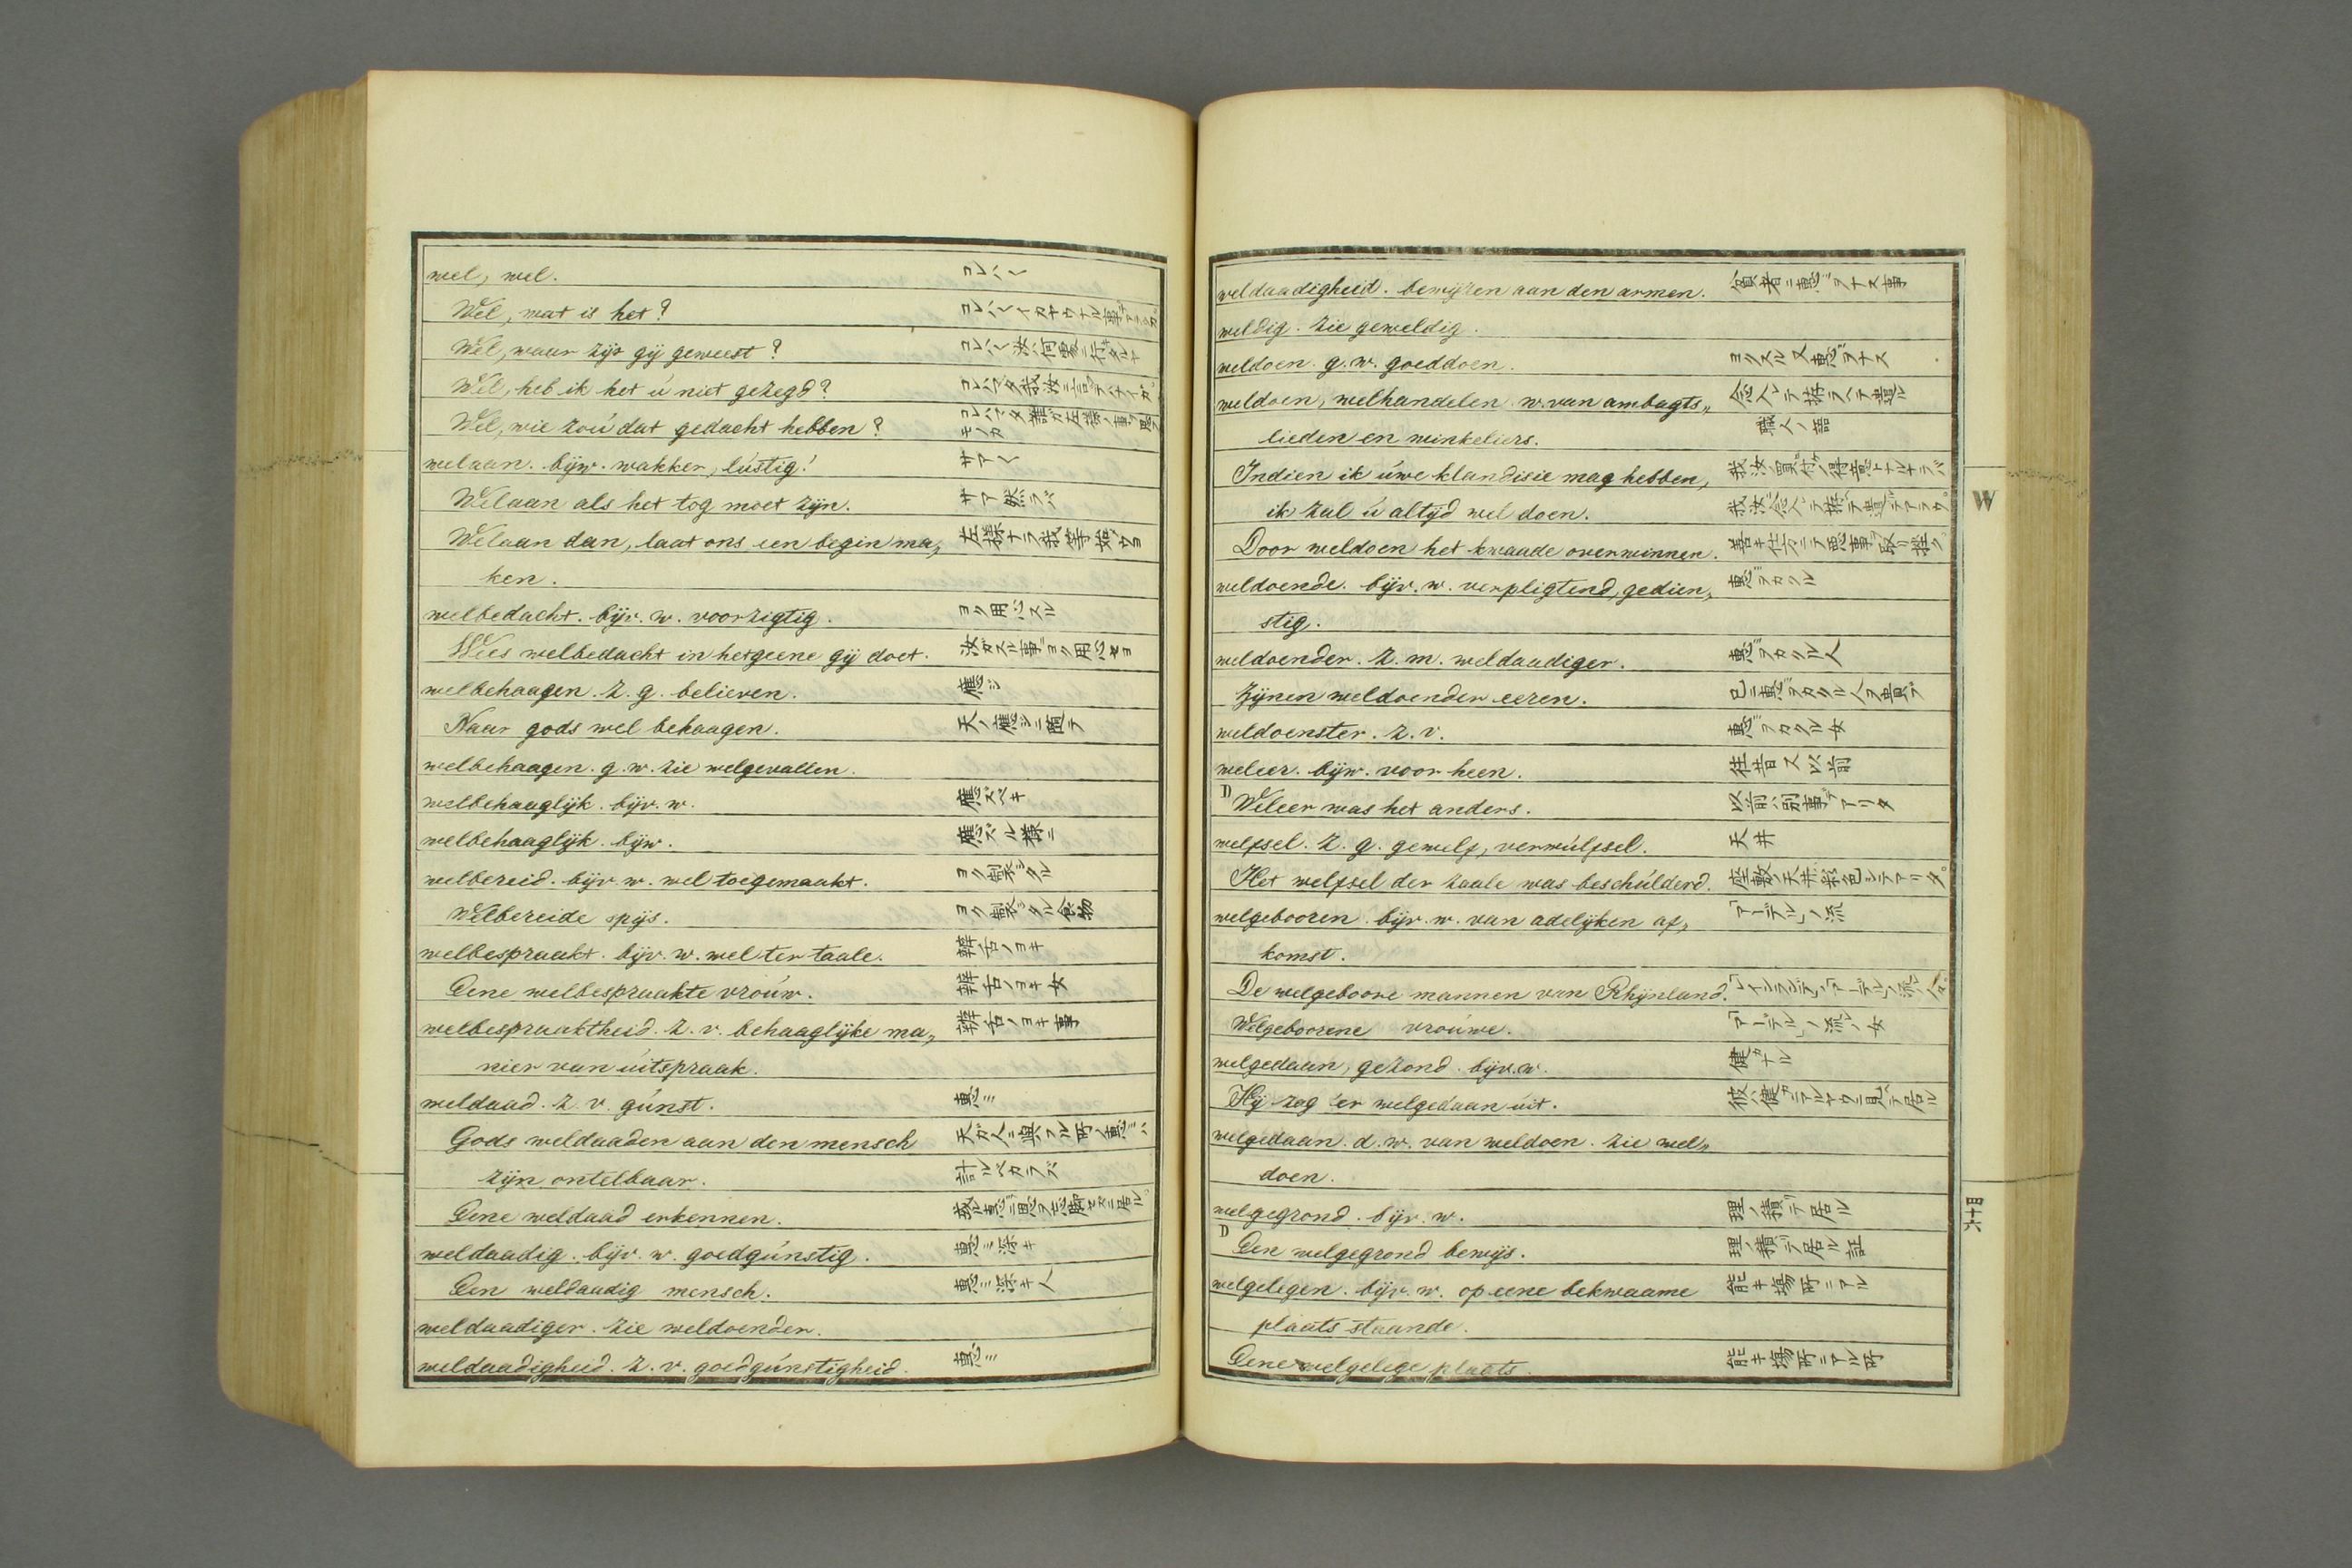 wel, wel. コレハ〱
Wel, wat is het? コレハ〱イカヤウナル事デアラウカ
Wel, waar zijt gij geweest? コレハ〱汝ハ何處ニ行
Wel, heb ik het ú niet gezegd? コレハマタ我汝ニ言
Wel, wie zoú dat gedacht hebben? コレハマタ誰ガ左様ノ事ヲ思フ
モノカ
welaan. bijw. wakker, lústig! サア〱
Welaan als het tog moet zijn. サア然ラバ
Welaan dan, laat ons een begin ma„ 左様ナラ我等始
ken.
welbedacht. bijv. w. voorzigtig. ヨク用心スル
Wees welbedacht in hetgeene gij doet. 汝ガスル事ヨク用心セヨ
welbehaagen. z. g. believen. 應ジ
Naar gods wel behaagen. 天ノ應ジニ隨テ
welbehaagen. g. w. zie welgevallen.
welbehaaglijk. bijv. w. 應ズベキ
welbehaaglijk. bijw. 應ズル様ニ
welbereid. bijv. w. wel toegemaakt. ヨク製シタル
Welbereide spijs. ヨク製シタル食物
welbespraakt. bijv. w. wel ter taale. 辨舌ノヨキ
Eene welbespraakte vroúw. 辨舌ノヨキ女
welbespraaktheid. z. v. behaaglijke ma„ 辨舌ノヨキ事
nier van úitspraak.
weldaad. z. v. gúnst. 惠ミ
Gods weldaaden aan den mensch 天ガ人ニ與フル所ノ惠ミハ
zijn ontelbaar. 計ルベカラズ
Eene weldaad erkennen.
weldaadig. bijv. w. goedgúnstig. 惠ミ深キ
Een weldaadig mensch. 惠ミ深キ人
weldaadiger. zie weldoender.
weldaadigheid. z. v. goedgúnstigheid. 惠ミ
weldaadigheid. bewijzen aan den armen. 貧者ニ惠ミヲナス事
weldig. zie geweldig.
weldoen. g. w. goeddoen. ヨクスル又惠ミヲナス
weldoen, welhandelen w. van ambagts„ 念入レテ拵ラヘテ遣ル
lieden en winkeliers. 職人ノ語
Indien ik úwe klandisie mag hebben, 我汝ノ買付ノ得意トナルナラバ
ik zal ú altijd wel doen. 我汝ニ念入レテ拵ヘテ遣ルデアラウ
Door weldoen het kwaade overwinnen. 善キ仕方ニテ悪事ヲ取リ挫ク
weldoende. bijv. w. verpligtend, gedien„ 惠ミヲカクル
stig.
weldoender. z. m. weldaadiger. 惠ミヲカクル人
Zijnen weldoender eeren. 己ニ惠ミヲカクル人ヲ貴ブ
weldoenster. z. v. 惠ミヲカクル女
weleer. bijw. voor heen. 往昔又以前
D Weleer was het anders. 以前ハ別事デアリタ
welfsel. z. g. gewelf, verwúlfsel. 天井
Het welfsel der zaale was beschúlderd. 座敷ノ天井ハ彩色シテアリタ
welgebooren. bijv. w. van adelijken af„ 「アーデル」ノ流
komst.
De welgeboore mannen van Rhijnland.
Welgeboorene vroúwe. 「アーデル」ノ流レノ女
welgedaan, gezond. bijv. w. 健カナル
Hij zag 'er welgedaan úit. 彼ハ健カニアルヤウニ見ヘテ居ル
welgedaan. d. w. van weldoen. zie wel„
doen.
welgegrond. bijv. w. 理ノ積ンデ居ル
D Een welgegrond bewijs. 理ノ積ンデ居ル証
welgelegen. bijv. w. op eene bekwaame 能キ場所ニアル
plaats staande.
Eene welgelege plaats. 能キ場所ニアル所
W
六十目